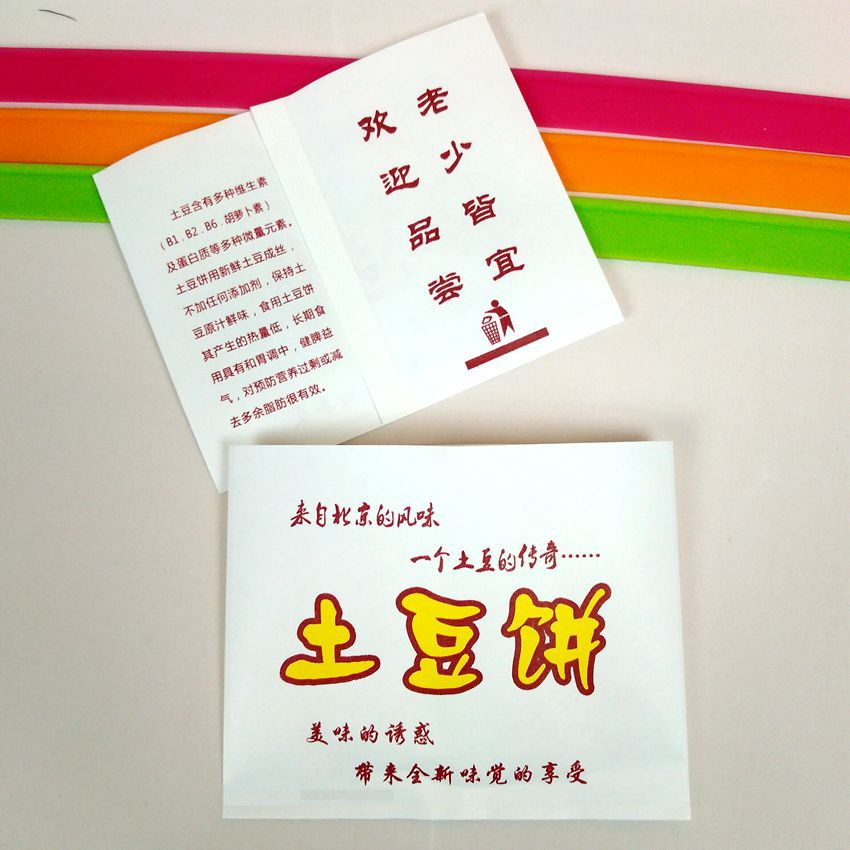 土豆含有多种维生素
（B1.B2.B6.胡萝卜素）
及蛋白质等多种微量元素。
土豆饼用新鲜土豆成丝，
不加任何添加剂，保持土
豆原汁鲜味，食用土豆饼
其产生的热量低，长期食
用具有和胃调中，健脾益
气，对预防营养过剩或减
去多余脂肪很有效。
老少皆宜
欢迎品尝
来自北京的风味
一个土豆的传奇……
土豆饼
美味的诱惑
带来全新味觉的享受